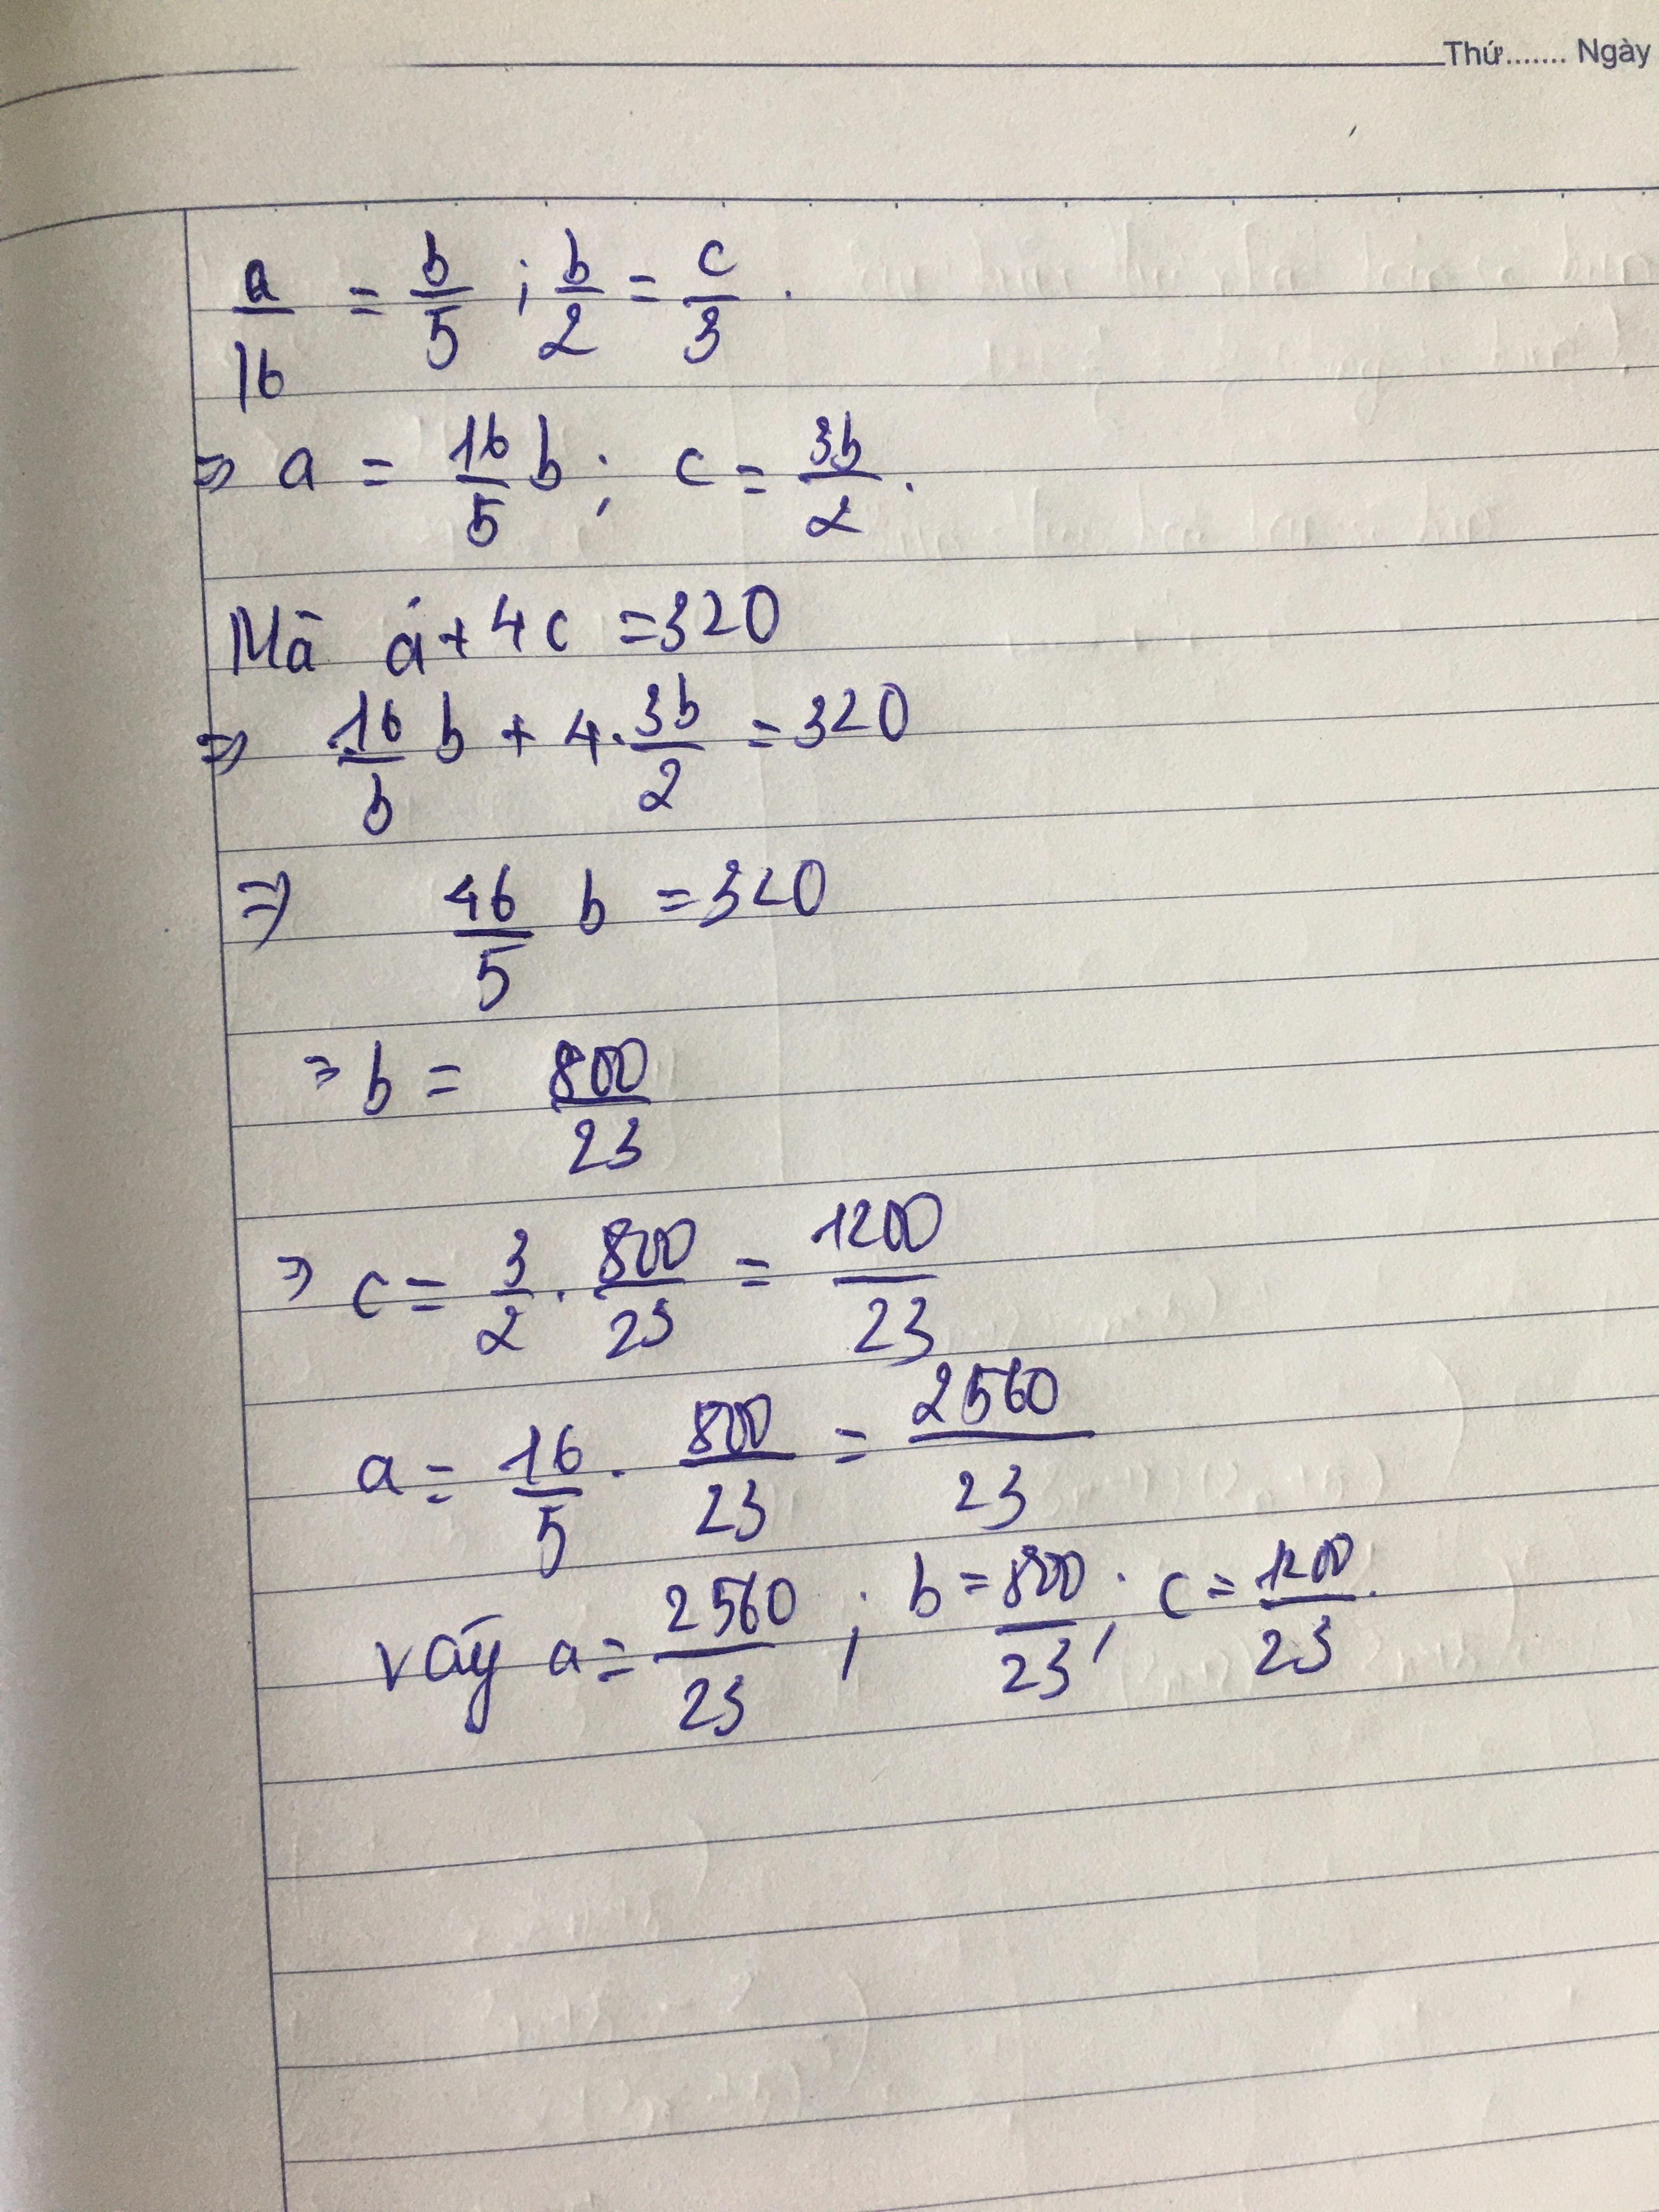 Thứ....... Ngày
a/16 = b/5 ; b/2 = c/3 .
⇒ a = 16/5 b ; c = 3b/2 .
Mà a + 4c = 320
⇒ 16/b b + 4 . 3b/2 = 320
⇒ 46/5 b = 320
⇒ b = 800/23
⇒ c = 3/2 . 800/23 = 1200/23
a = 16/5 . 800/23 = 2560/23
vậy a = 2560/23 ; b = 800/23 ; c = 1200/23 .